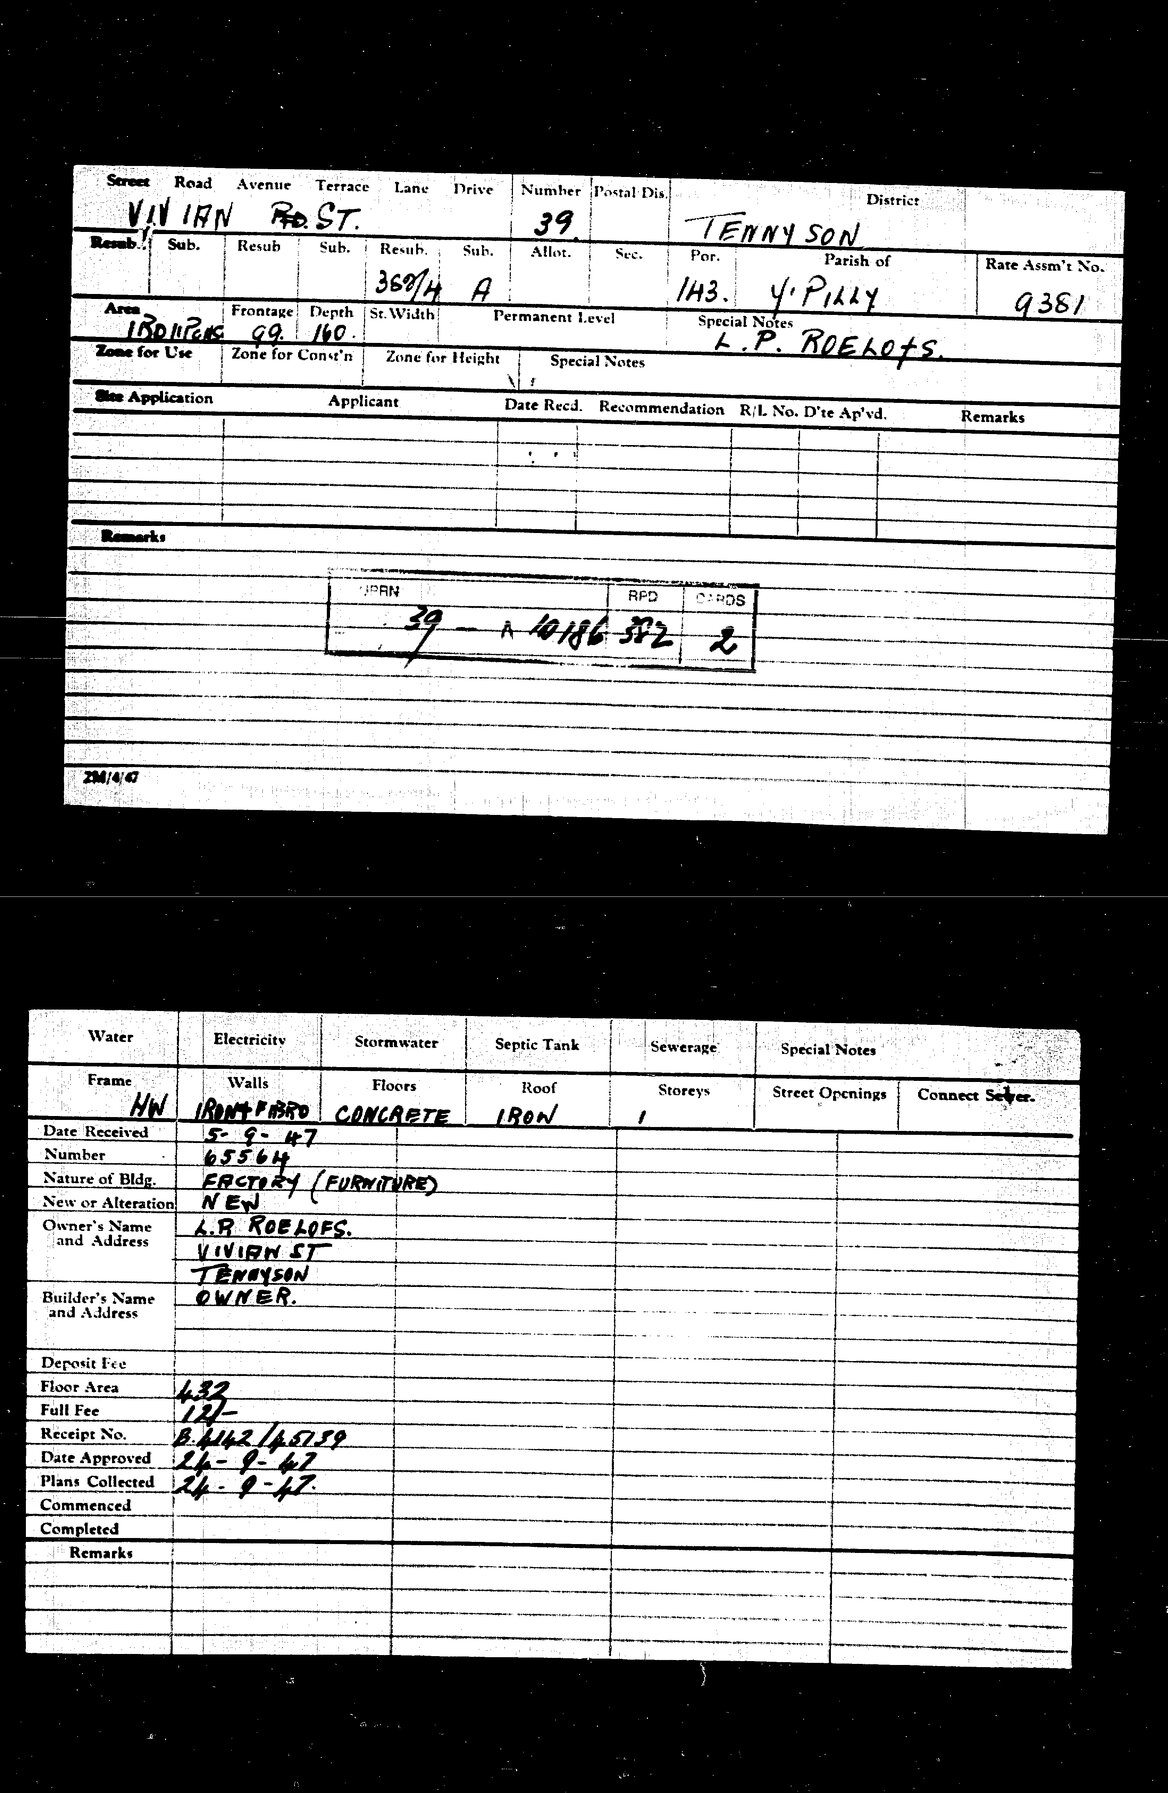 Street Road Avenue Terrace Lane Drive Number Postal Dis. District
VIVIAN RD. ST. 39. TENNYSON
Resub. Sub. Resub Sub. Resub. Sub. Allot. Sec. Por. Parish of Rate Assm't No.
A 143. Y'PILLY 9381
Area Frontage Depth St.Width Permanent Level Special Notes
99. 160. L. P. ROELOFS.
Zone for Use Zone for Const'n Zone for Height Special Notes
Site Application Applicant Date Recd. Recommendation R/L No. D'te Ap'vd. Remarks
Remarks
UPRN RPD CARDS
39 — A 10186 382 2
2M/4/47
Water Electricity Stormwater Septic Tank Sewerage Special Notes
Frame Walls Floors Roof Storeys Street Openings Connect Sewer.
HW IRON & FIBRO CONCRETE IRON 1
Date Received 5-9-47
Number 65564
Nature of Bldg. FACTORY (FURNITURE)
New or Alteration NEW
Owner's Name L.P. ROELOFS.
and Address VIVIAN ST
TENNYSON
Builder's Name OWNER.
and Address
Deposit Fee
Floor Area 432
Full Fee 12/-
Receipt No. B.4142/45139
Date Approved 24-9-47
Plans Collected 24-9-47.
Commenced
Completed
Remarks